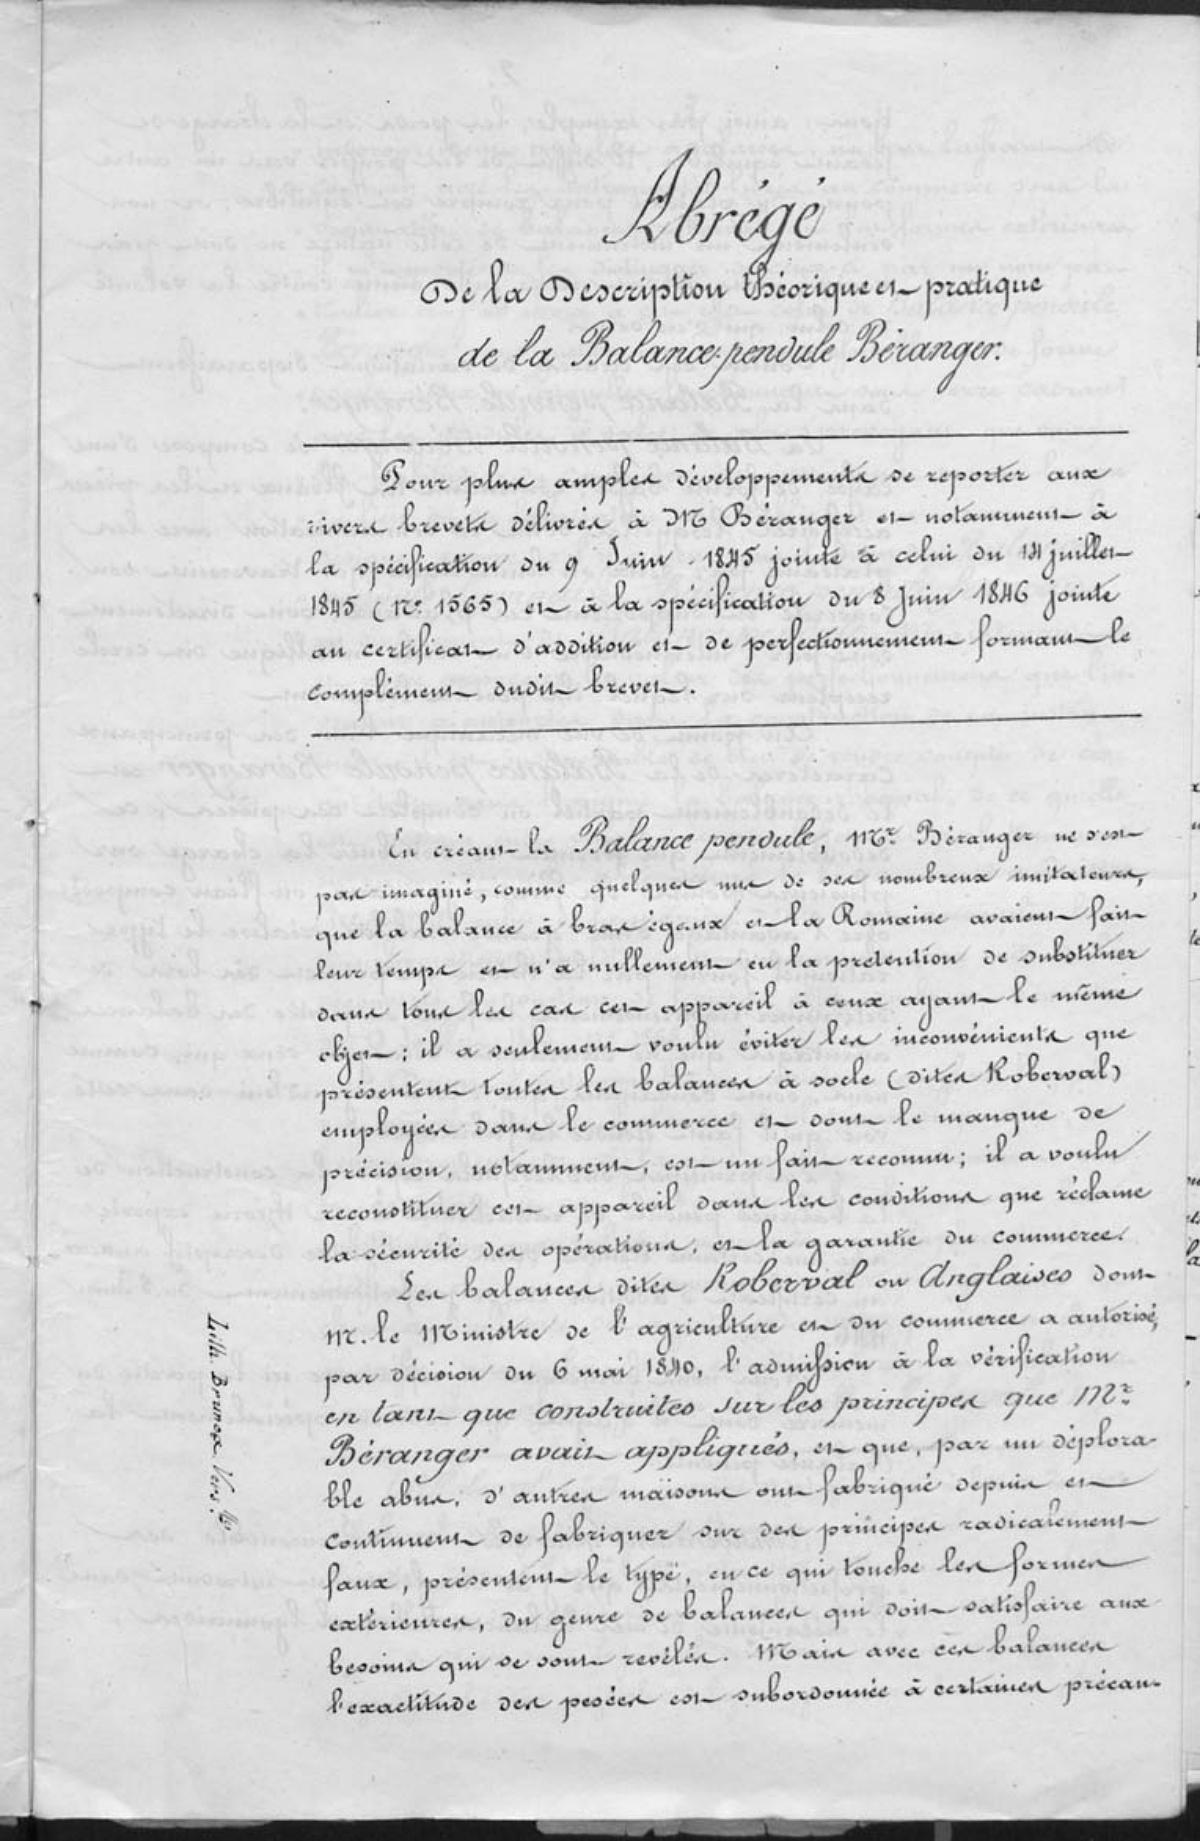 Abrégé
De la Description théorique et pratique
de la Balance-pendule Béranger.
Pour plus amples développements se reporter aux
divers brevets délivrés à M Béranger et notamment à
la spécification du 9 Juin 1845 jointe à celui du 14 juillet
1845 (N° 1565) et à la spécification du 8 Juin 1846 jointe
au certificat d'addition et de perfectionnement formant le
complément dudit brevet.
En créant la Balance pendule, Mr. Béranger ne s'est
pas imaginé, comme quelques uns de ses nombreux imitateurs,
que la balance à bras égaux et la Romaine avaient fait
leur temps et n'a nullement eu la pretention de substituer
dans tous les cas cet appareil à ceux ayant le même
objet; il a seulement voulu éviter les inconvénients que
présentent toutes les balances à socle (dites Roberval)
employées dans le commerce et dont le manque de
précision, notamment, est un fait reconnu; il a voulu
reconstituer cet appareil dans les conditions que réclame
la sécurité des opérations, et la garantie du commerce.
Les balances dites Roberval ou Anglaises dont
M. le Ministre de l'agriculture et du commerce a autorisé,
par décision du 6 mai 1840, l'admission à la vérification
en tant que construites sur les principes que Mr.
Béranger avait appliqués, et que, par un déplora-
ble abus, d'autres maisons ont fabriqué depuis et
continuent de fabriquer sur des principes radicalement
faux, présentent le type, en ce qui touche les formes
extérieures, du genre de balances qui doit satisfaire aux
besoins qui se sont revélés. Mais avec ces balances
l'exactitude des pesées est subordonnée à certaines précau-
Lith. Brunet